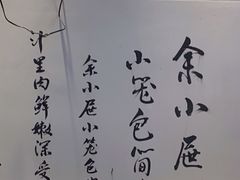 余小屉
小笼包简
余小屉小笼包
汁里肉鲜嫩深受